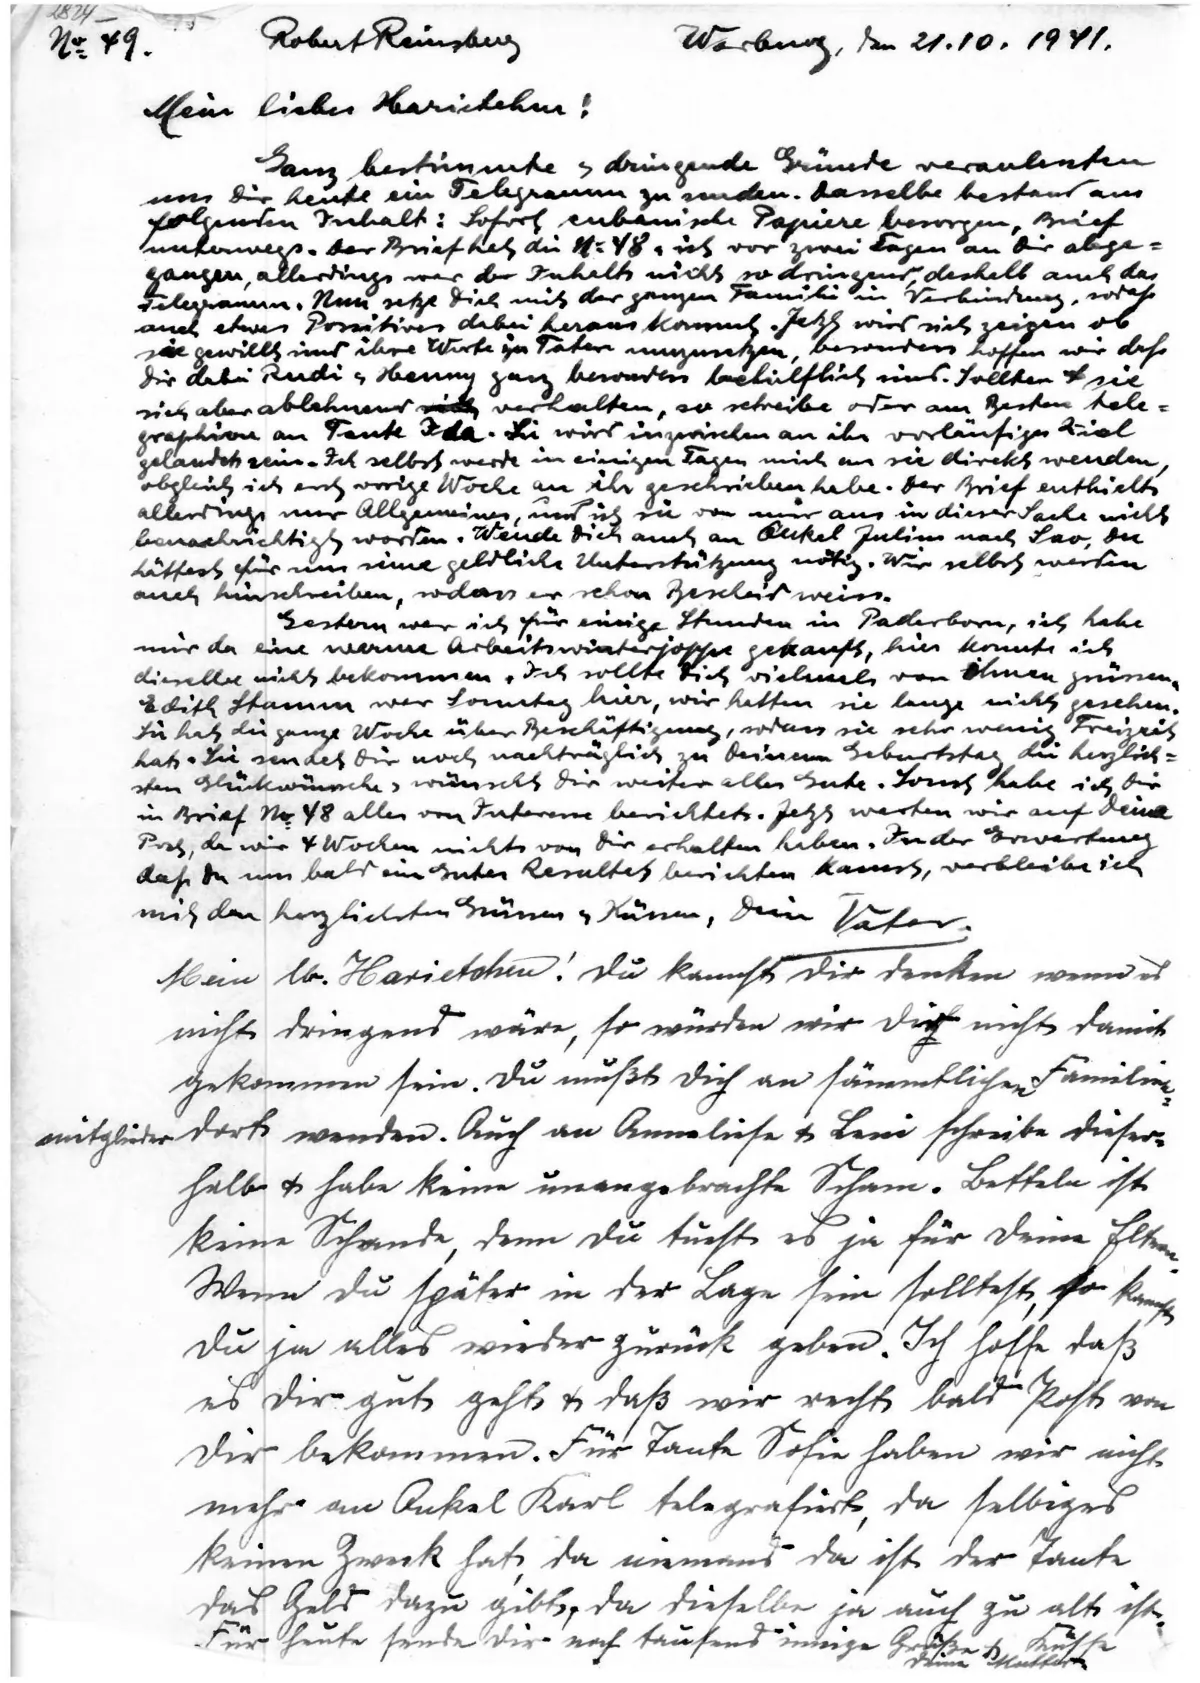 2824
No 49. Robert Reinsberg Warburg, den 21.10.1941.
Mein liebes Harietchen!
Ganz bestimmte & dringende Gründe veranlenten
uns Dir heute ein Telegramm zu senden. Dasselbe bestand aus
folgenden Inhalt: Sofort cubanische Papiere besorgen, Brief
unterwegs. Der Brief hat die No 48 & ist vor zwei Tagen an Dir abge=
gangen, allerdings war der Inhalt nicht so dringend, deshalb auch das
Telegramm. Nun setze Dich mit der ganzen Familie in Verbindung, sodaß
auch etwas Possitives dabei heraus kommt. Jetzt wird sich zeigen ob
sie gewillt sind ihre Worte in Taten umzusetzen, besonders hoffen wir daß
Dir dabei Rudi & Henny ganz besonders behülflich sind. Sollten sie
sich aber ablehnend verhalten, so schreibe oder am Besten tele=
graphiere an Tante Ida. Sie wird inzwischen an ihr vorläufiges Ziel
gelandet sein. Ich selbst werde in einigen Tagen mich an sie direkt wenden,
obgleich ich erst vorige Woche an ihr geschrieben habe. Der Brief enthielt
allerdings nur Allgemeines, und ist sie von mir aus in dieser Sache nicht
benachrichtigt worden. Wende Dich auch an Onkel Julius nach Sao, Du
hättest für uns seine geldliche Unterstützung nötig. Wir selbst werden
auch hinschreiben, sodass er schon Bescheid weiss.
Gestern war ich für einige Stunden in Paderborn, ich habe
mir da eine warme Arbeitswinterjoppe gekauft, hier konnte ich
dieselbe nicht bekommen. Ich sollte Dich vielmals von grüssen.
Edith Stamm war Sonntag hier, wir hatten sie lange nicht gesehen.
Sie hat die ganze Woche über Beschäftigung, sodass sie sehr wenig Freizeit
hat. Sie sendet Dir noch nachträglich zu Deinem Geburtstag die herzlich=
sten Glückwünsche & wünscht Dir weiter alles Gute. Sonst habe ich Dir
in Brief No 48 alles von Interesse berichtet. Jetzt warten wir auf Deine
Post, da wir 4 Wochen nichts von Dir erhalten haben. In der Erwartung
daß Du uns bald ein gutes Resultat berichten kannst, verbleibe ich
mit den herzlichsten Grüssen & Küssen, Dein Vater.
Mein lb. Harietchen! Du kannst Dir denken wenn es
nicht dringend wäre, so würden wir Dir nicht damit
gekommen sein. Du mußt Dich an sämmtlichen Familien=
mitglieder dort wenden. Auch an Anneliese & Leni schreibe dieser=
halb & habe keine unangebrachte Scham. Betteln ist
keine Schande, denn Du tuest es ja für Deine Eltern.
Wenn Du später in der Lage sein solltest, so kannst
Du ja alles wieder zurück geben. Ich hoffe daß
es Dir gut geht & daß wir recht bald Post von
Dir bekommen. Für Tante Sofie haben wir nicht
mehr an Onkel Karl telegrafiert, da selbiges
keinen Zweck hat, da niemand da ist der Tante
das Geld dazu gibt, da dieselbe ja auch zu alt ist.
Für heute sende Dir noch tausend innige Grüße & Küsse
Deine Mutter